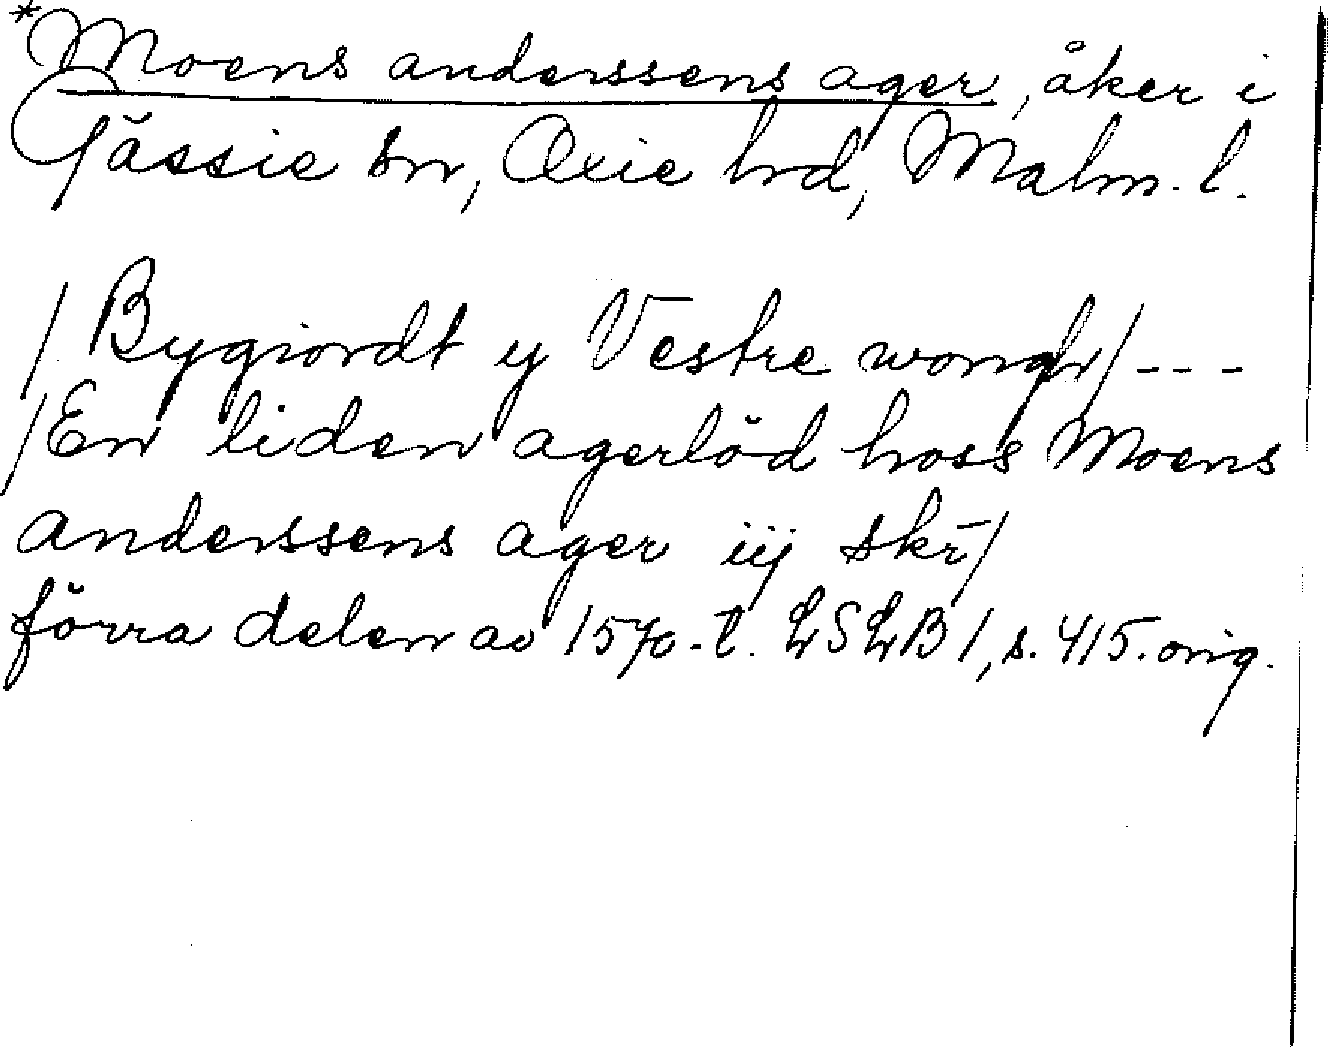 *Moens anderssens ager, åker i
Gässie sn, Oxie hrd, Malm. l.
/Bygiordt y Vestre wongh/---
/En liden agerlöd hoss Moens
anderssens ager iij skr̄/
förra delen av 1570-t. LSLB 1, s. 415. orig.